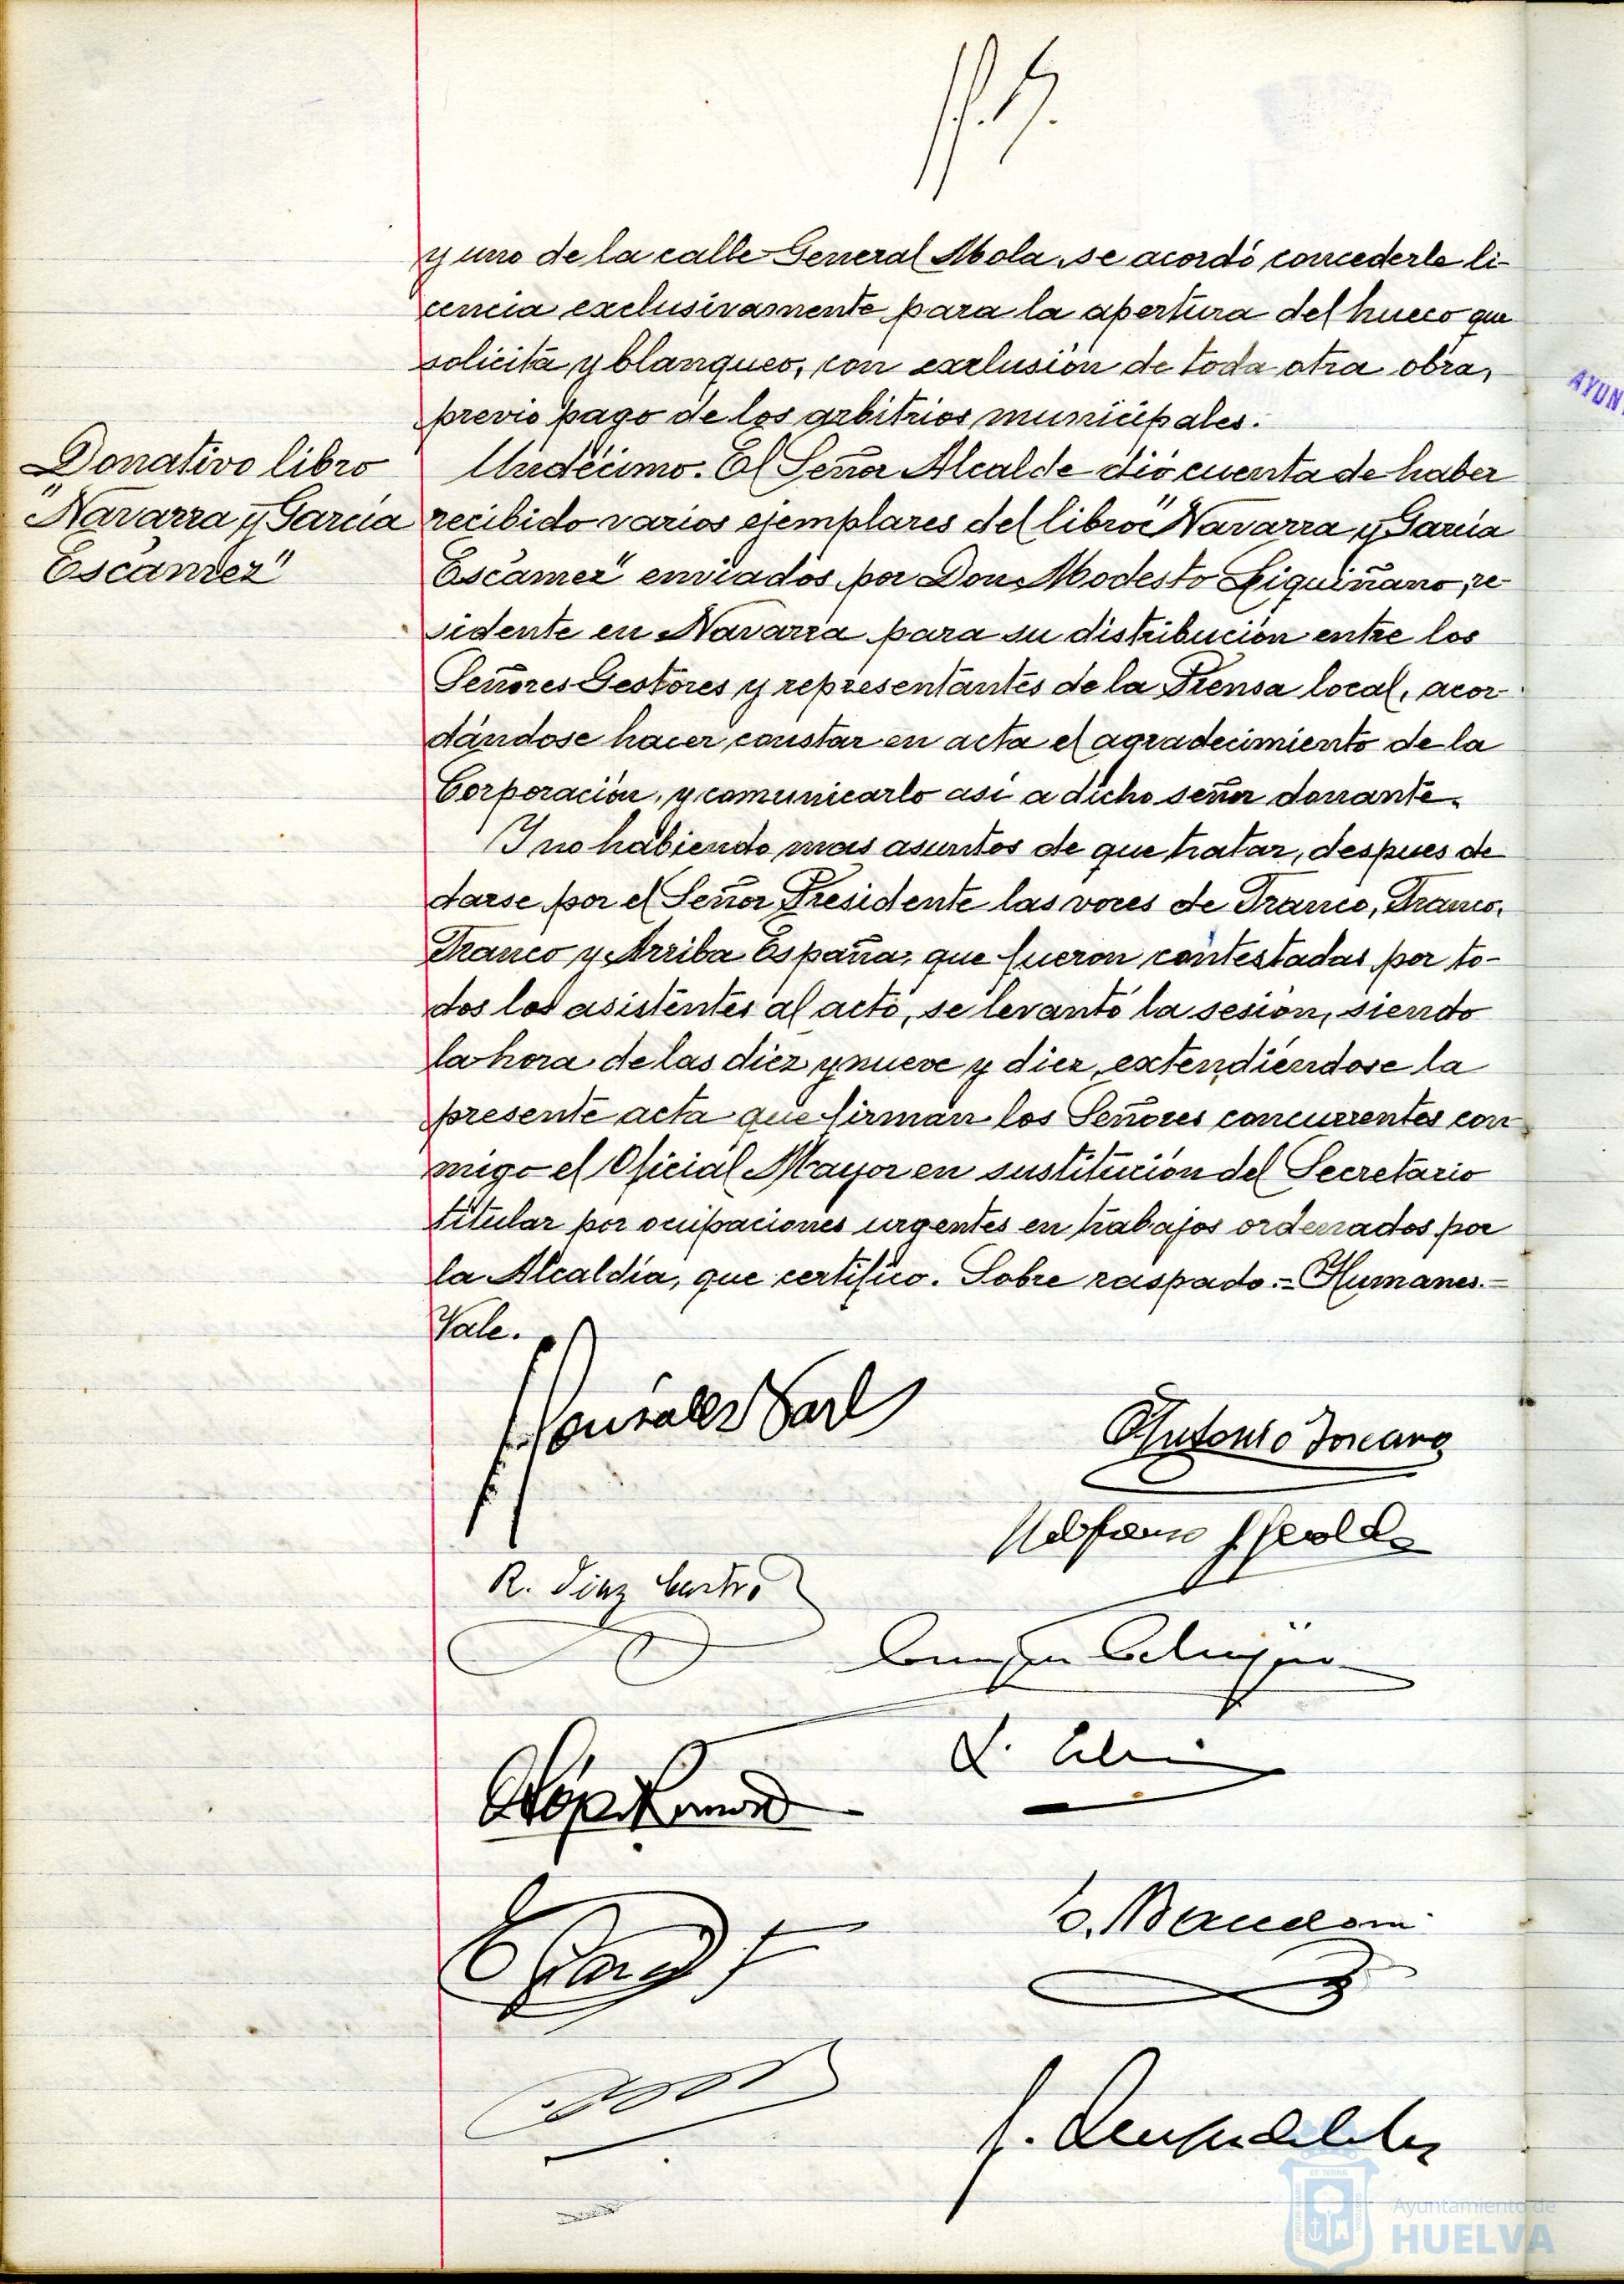 y uno de la calle General Mola, se acordó concederle li-
cencia exclusivamente para la apertura del hueco que
solicita y blanqueo, con exclusión de toda otra obra,
previo pago de los arbitrios municipales.
Donativo libro
"Navarra y García
Escámez"
Undécimo. El Señor Alcalde dió cuenta de haber
recibido varios ejemplares del libro "Navarra y García
Escámez" enviados por Don Modesto Liquiñano, re-
sidente en Navarra para su distribución entre los
Señores Gestores y representantes de la Prensa local, acor-
dándose hacer constar en acta el agradecimiento de la
Corporación, y comunicarlo así a dicho señor donante.
Y no habiendo mas asuntos de que tratar, despues de
darse por el Señor Presidente las voces de Franco, Franco,
Franco y Arriba España, que fueron contestadas por to-
dos los asistentes al acto, se levantó la sesión, siendo
la hora de las diez y nueve y diez, extendiéndose la
presente acta que firman los Señores concurrentes con
migo el Oficial Mayor en sustitución del Secretario
titular por ocupaciones urgentes en trabajos ordenados por
la Alcaldía, que certifico. Sobre raspado.=Humanes.=
Vale.
Antonio Toscano
R. Diaz Castro
AYUN
Ayuntamiento de
HUELVA